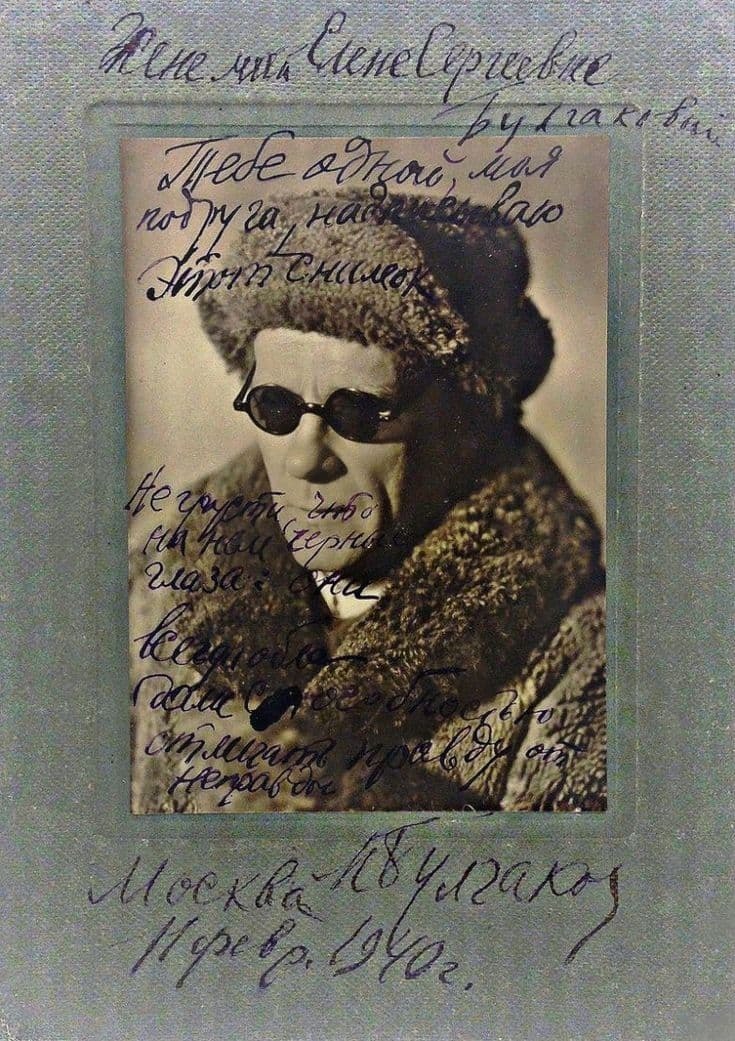 Жене моей Елене Сергеевне
Булгаковой
Тебе одной, моя
подруга, надписываю
этот снимок
Не грусти, что
на нем черные
глаза: они
всегда обла-
дали способностью
отличать правду от
неправды
Москва М Булгаков
11 февр. 1940 г.